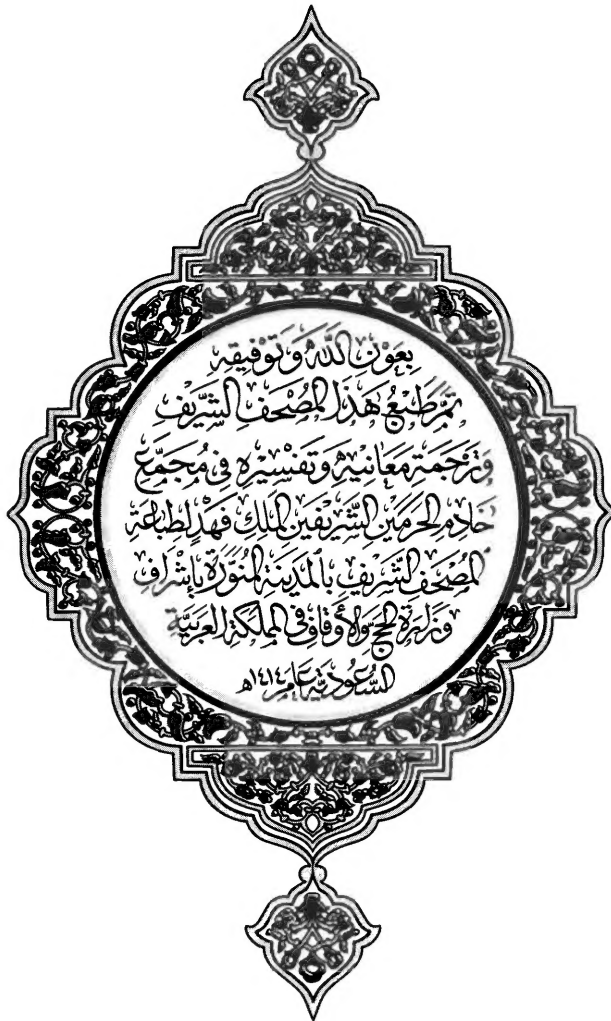 بِعَوْنِ اللَّهِ وَتَوْفِيقِهِ
تَمَّ طَبْعُ هَذَا الْمُصْحَفِ الشَّرِيفِ
وَتَرْجَمَةُ مَعَانِيهِ وَتَفْسِيرِهِ فِي مُجَمَّعِ
خَادِمِ الْحَرَمَيْنِ الشَّرِيفَيْنِ الْمَلِكِ فَهْدٍ لِطِبَاعَةِ
الْمُصْحَفِ الشَّرِيفِ بِالْمَدِينَةِ الْمُنَوَّرَةِ بِإِشْرَافِ
وَزَارَةِ الْحَجِّ وَالْأَوْقَافِ فِي الْمَمْلَكَةِ الْعَرَبِيَّةِ
السُّعُودِيَّةِ عَامَ ١٤١٤هـ